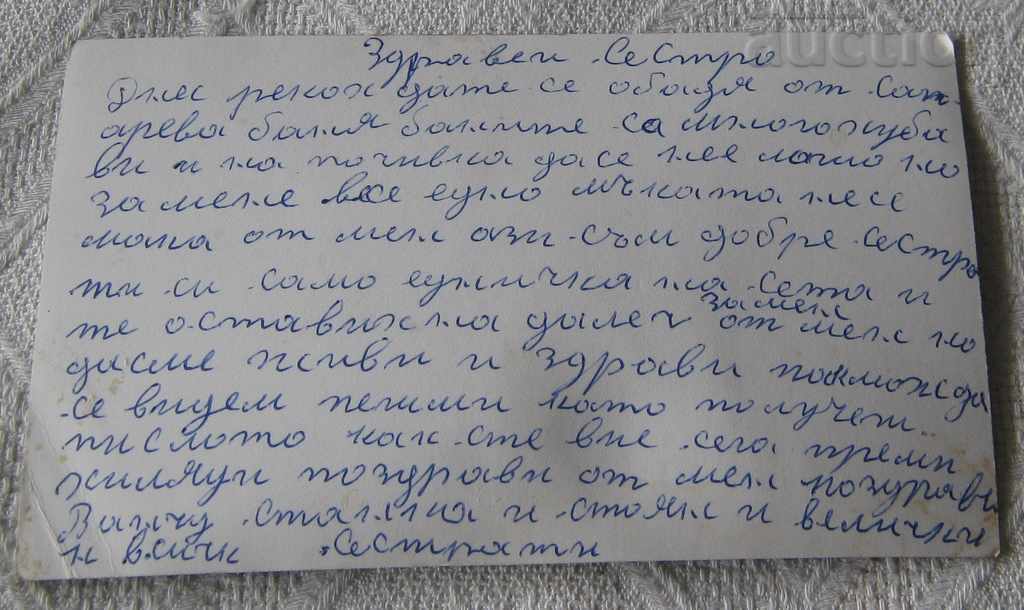 Здравей Сестро
Днес рекох дате се обадя от Сап-
арева баня баните са многохуба
ви и на почивка дасе нее лошо но
за мене все едно мъката несе
маха от мен ази съм добре сестро
ти си само едничка на света и
за мен
те оставихна далеч от мен но
дасме живи и здрави пакможда
се видем пешими като получеш
писмото как сте вие сега преми
хиляди поздрави от мен поздрави
Ванчу станка и стоян и велички
и всичк сестрати
auctio